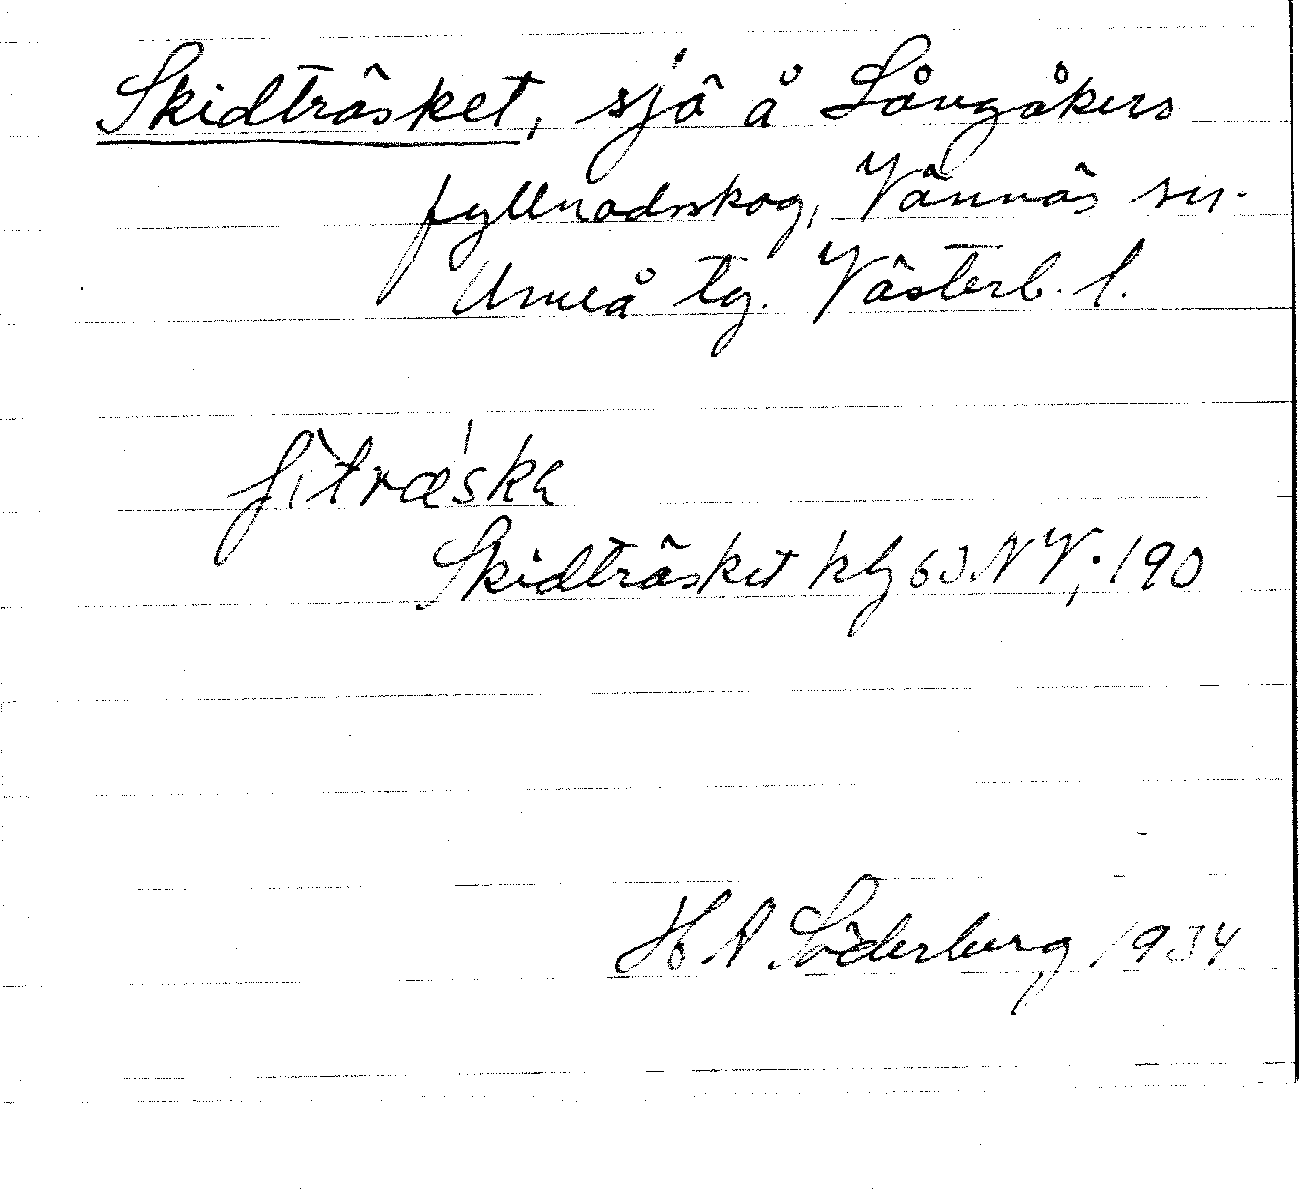 Skidträsket, sjö å Långåkers
fyllnadsskog, Vännäs sn.
Umeå tg. Västerb. l.
ʃìtræ´ska
Skidträsket kbl 63 NV; 190
H A Söderberg 1934